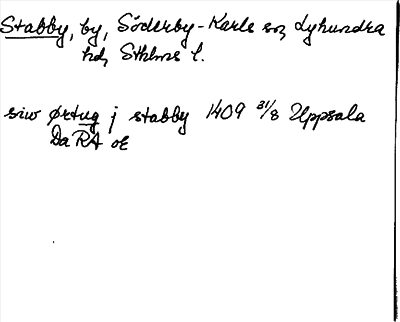 Stabby, by, Söderby-Karls sn, Lyhundra
hd, Sthlms l.
siw ørtug j stabby 1409 31/8 Uppsala
DaRA oE